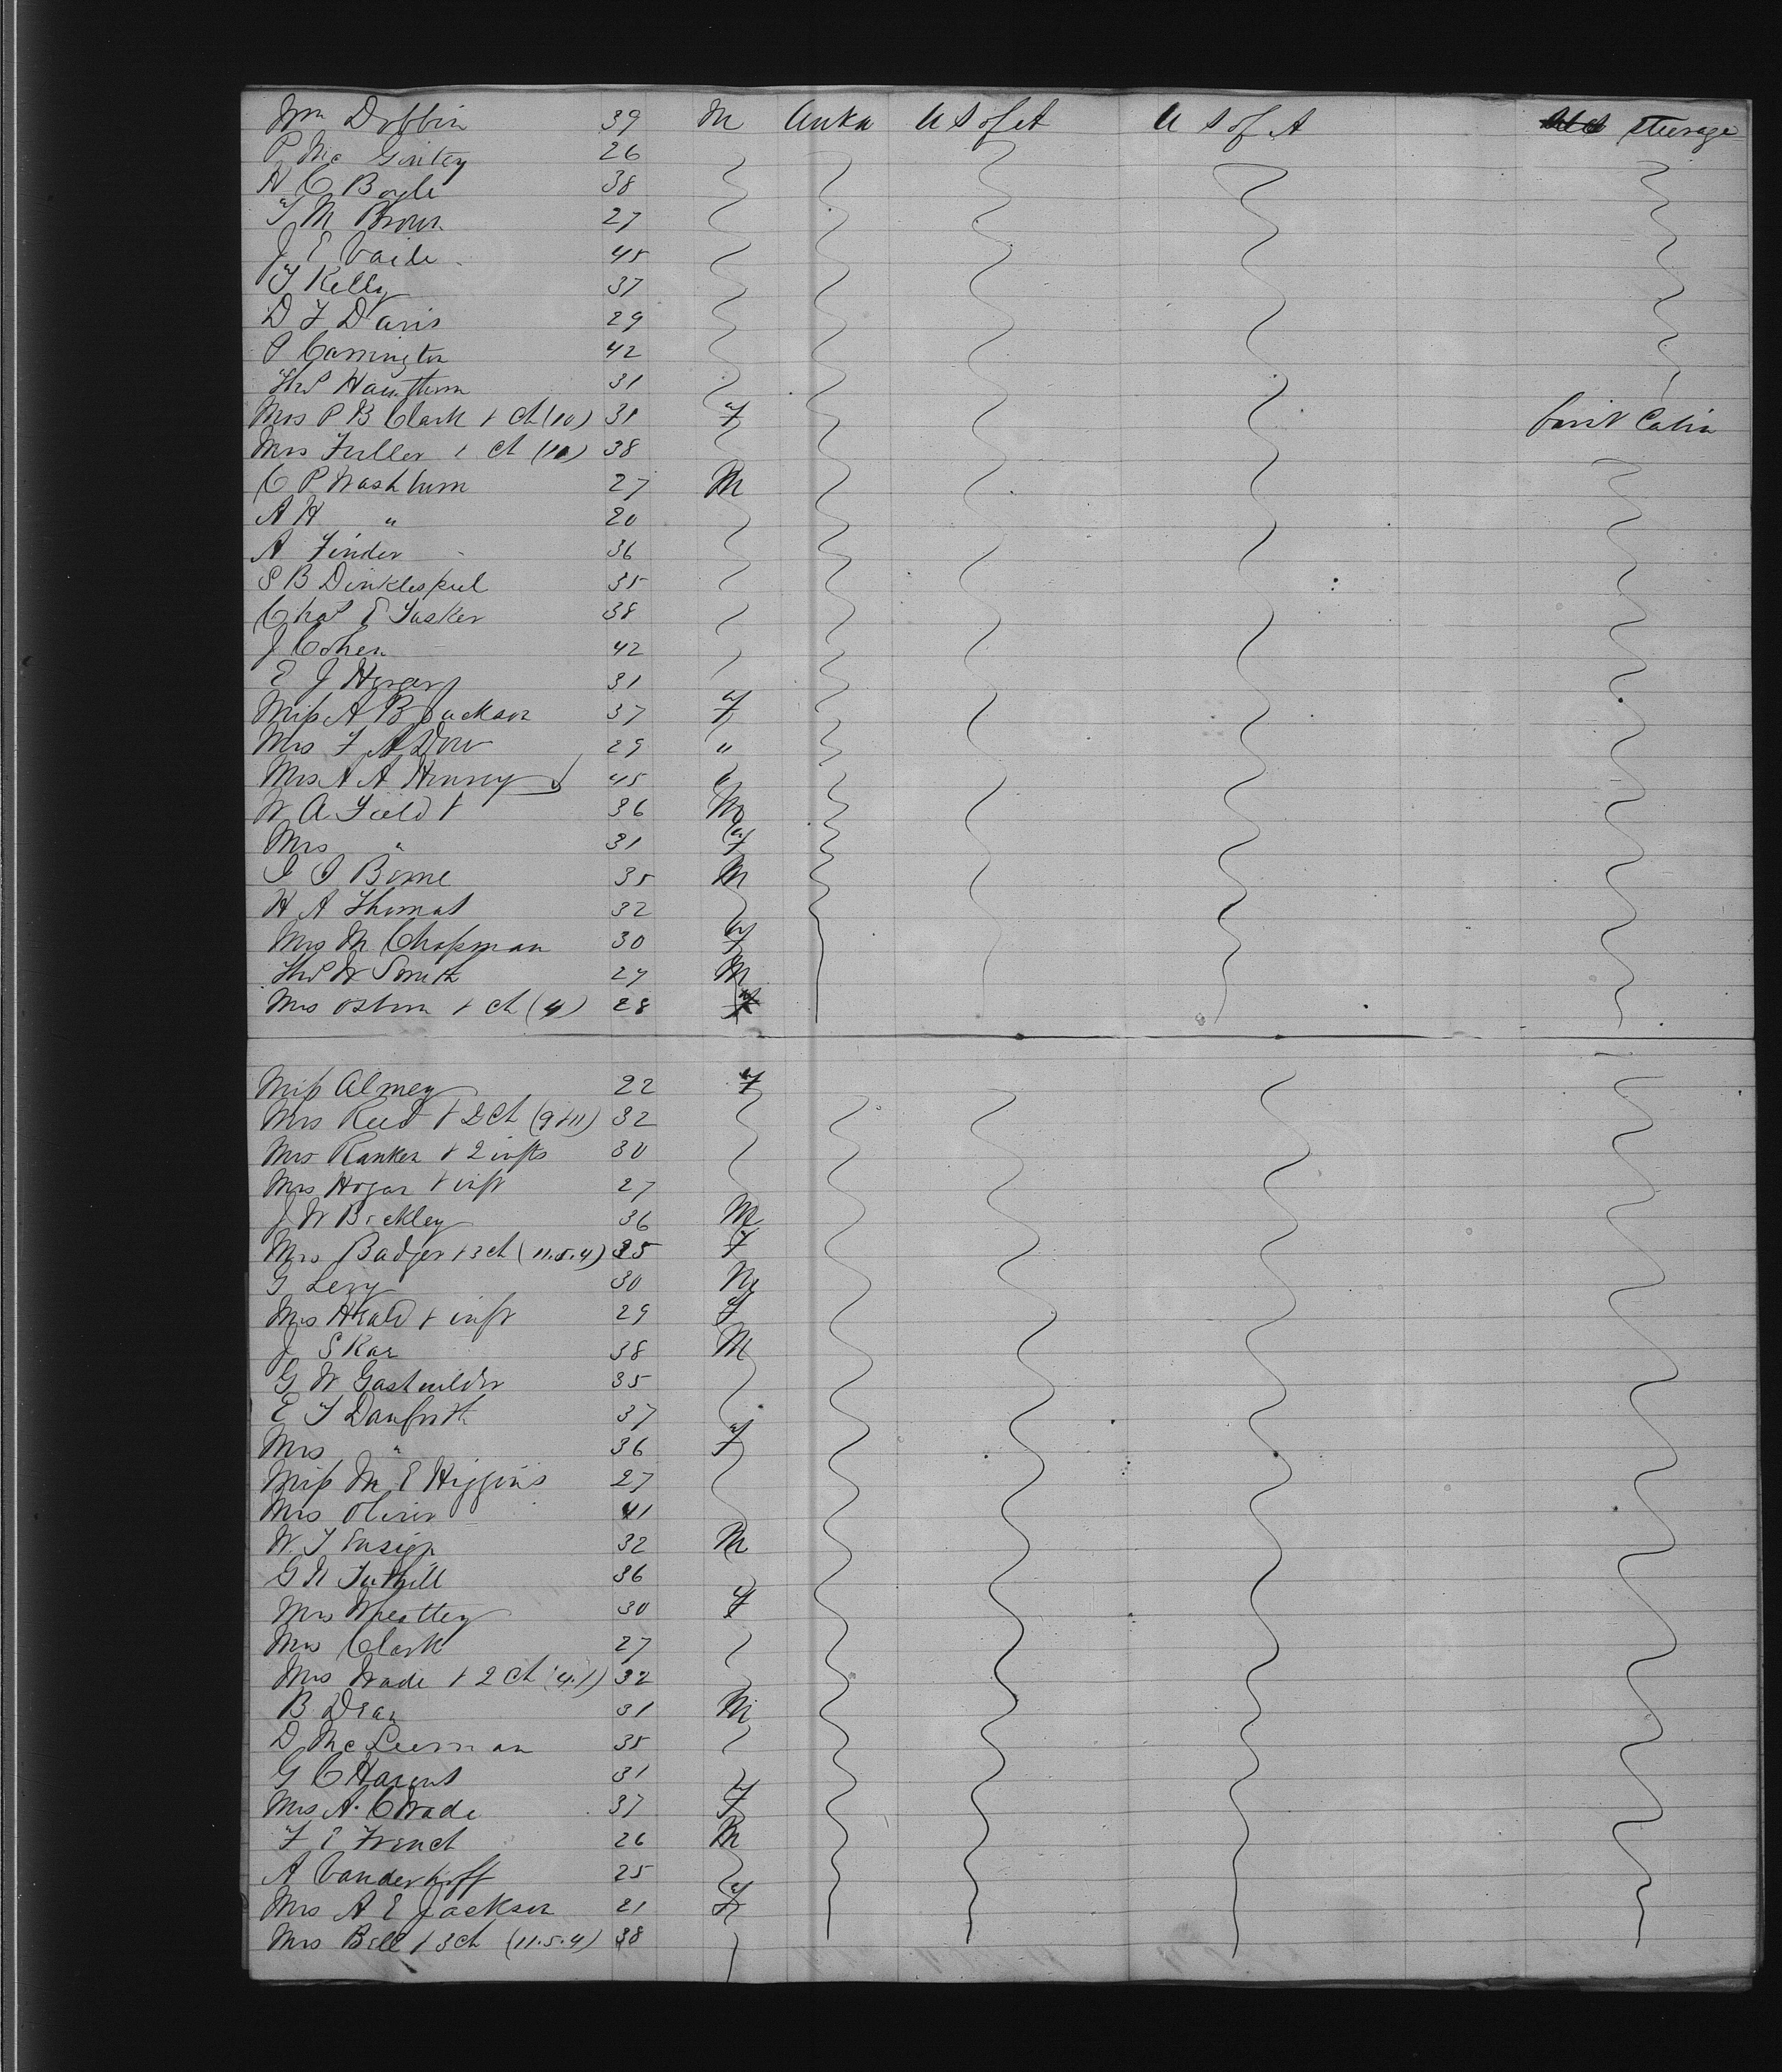 Wm Dobbin 39 M Unkn U S of A U S of A steerage
P Mc Gintey 26
H C Boyle 38
T M Brown 27
J E Vaile 45
T Kelly 37
D F Davis 29
P Carrington 42
Thos Hawthorn 31
Mrs P B Clark + ch (10) 31 F First Cabin
Mrs Fuller + ch (10) 38
C P Washburn 27 M
A H " 20
A Finder 36
S B Dinklespiel 35
Chas E Tasker 38
J Cohen 42
E J 31
Miss A B Jackson 37 F
Mrs F A Dow 29 "
Mrs A A Hussey 45 "
W A Field + 36 M
Mrs " 31 F
35 M
H A Thomas 32
Mrs M Chapman 30 F
Thos W Smith 27 M
Mrs Osborn + ch (4) 28 F
Miss Almey 22 F
Mrs Reed + 2 ch (9+11) 32
Mrs Ranken + 2 infts 30
Mrs Hogan + inft 27
J W Bickley 36 M
Mrs Badger + 3 ch (11.5.4) 35 F
G Levy 30 M
Mrs Heald + inft 29 F
J S Kar 38 M
G W 35
E T Danforth 37
Mrs " 36 F
Miss M E Higgins 27
Mrs Oliver 41
W T Ensign 32 M
G N Tuthill 36
Mrs Wheatley 30 F
Mrs Clark 27
Mrs Wade + 2 ch (4.1) 32
B Dean 31 M
D McLeernan 35
G C 31
Mrs A. C Wade 37 F
F E French 26 M
A Vanderhoff 25
Mrs A E Jackson 21 F
Mrs Bell + 3 ch (11.5.4) 38